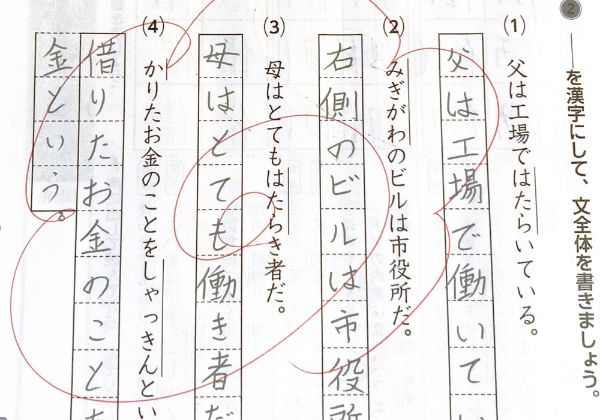 2 ――を漢字にして、文全体を書きましょう。
(1) 父は工場ではたらいている。
父は工場で働いてい
(2) みぎがわのビルは市役所だ。
右側のビルは市役所
(3) 母はとてもはたらき者だ。
母はとても働き者だ
(4) かりたお金のことをしゃっきんとい
借りたお金のことを
金という。